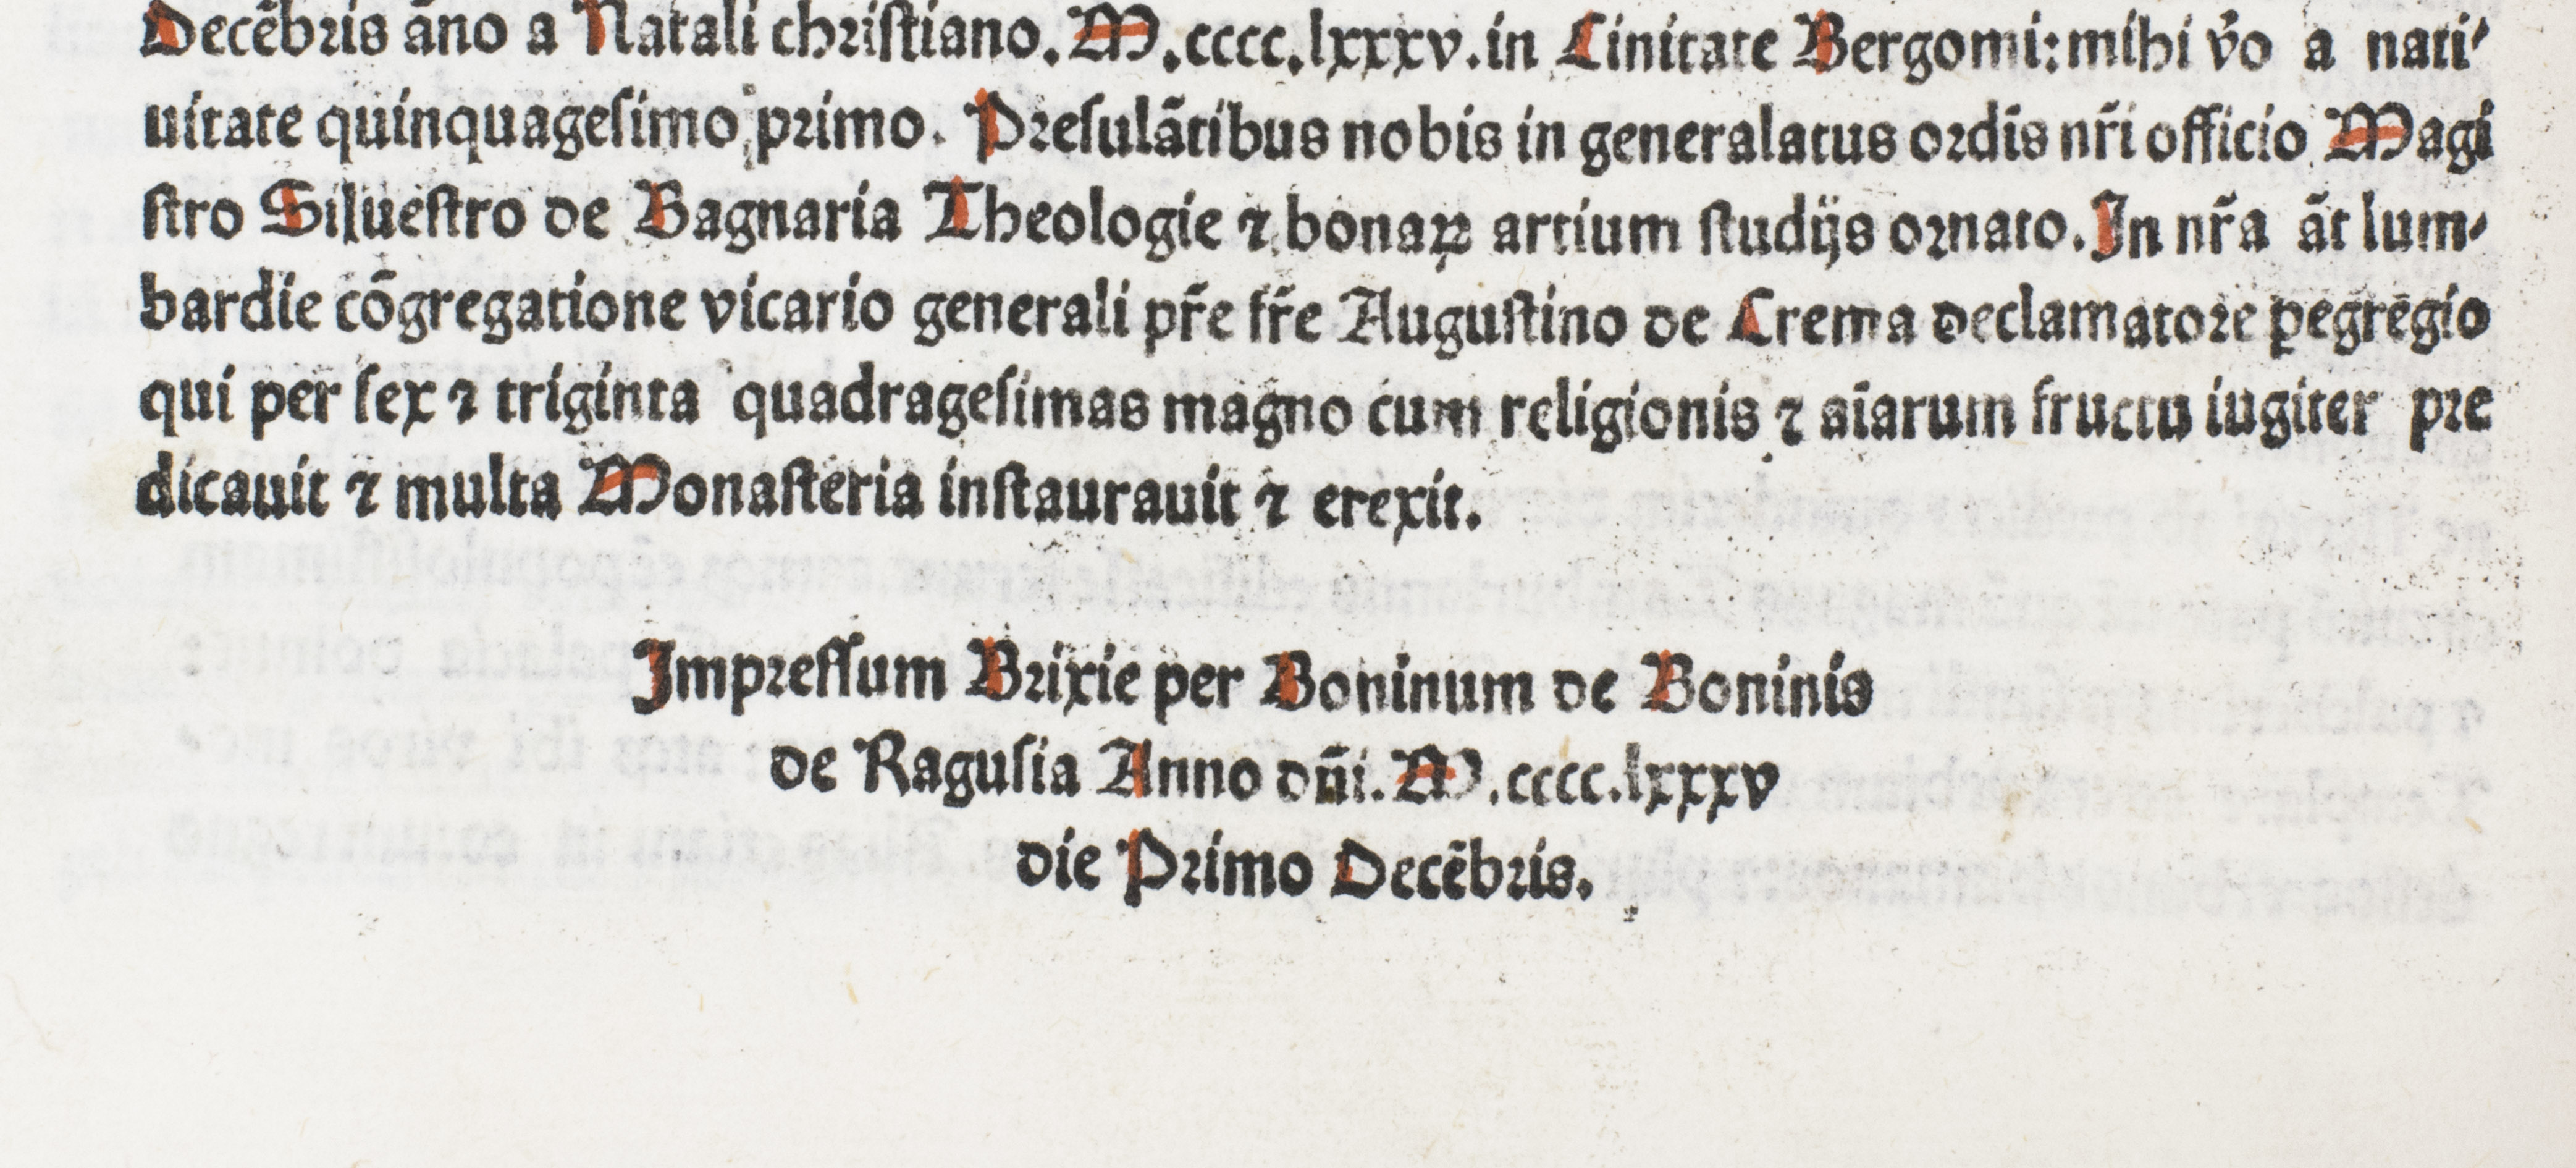 Decēbris āno a Natali chriſtiano. M.cccc.lxxxv.in Ciuitate Bergomi: mihi v̄o a nati⸗
uitate quinquageſimo primo. Preſulātibus nobis in generalatus ordīs nr̄i officio Magi
ſtro Silueſtro de Bagnaria Theologie ⁊ bonaꝝ artium ſtudijs ornato. In nr̄a āt lum⸗
bardie cōgregatione vicario generali pr̄e fr̄e Auguſtino de Crema declamatore ꝑegregio
qui per ſex ⁊ triginta quadrageſimas magno cum religionis ⁊ aīarum fructu iugiter pre
dicauit ⁊ multa Monaſteria inſtaurauit ⁊ erexit.
Impreſſum Brixie per Boninum de Boninis
de Raguſia Anno dn̄i. M.cccc.lxxxv
die Primo Decēbris.